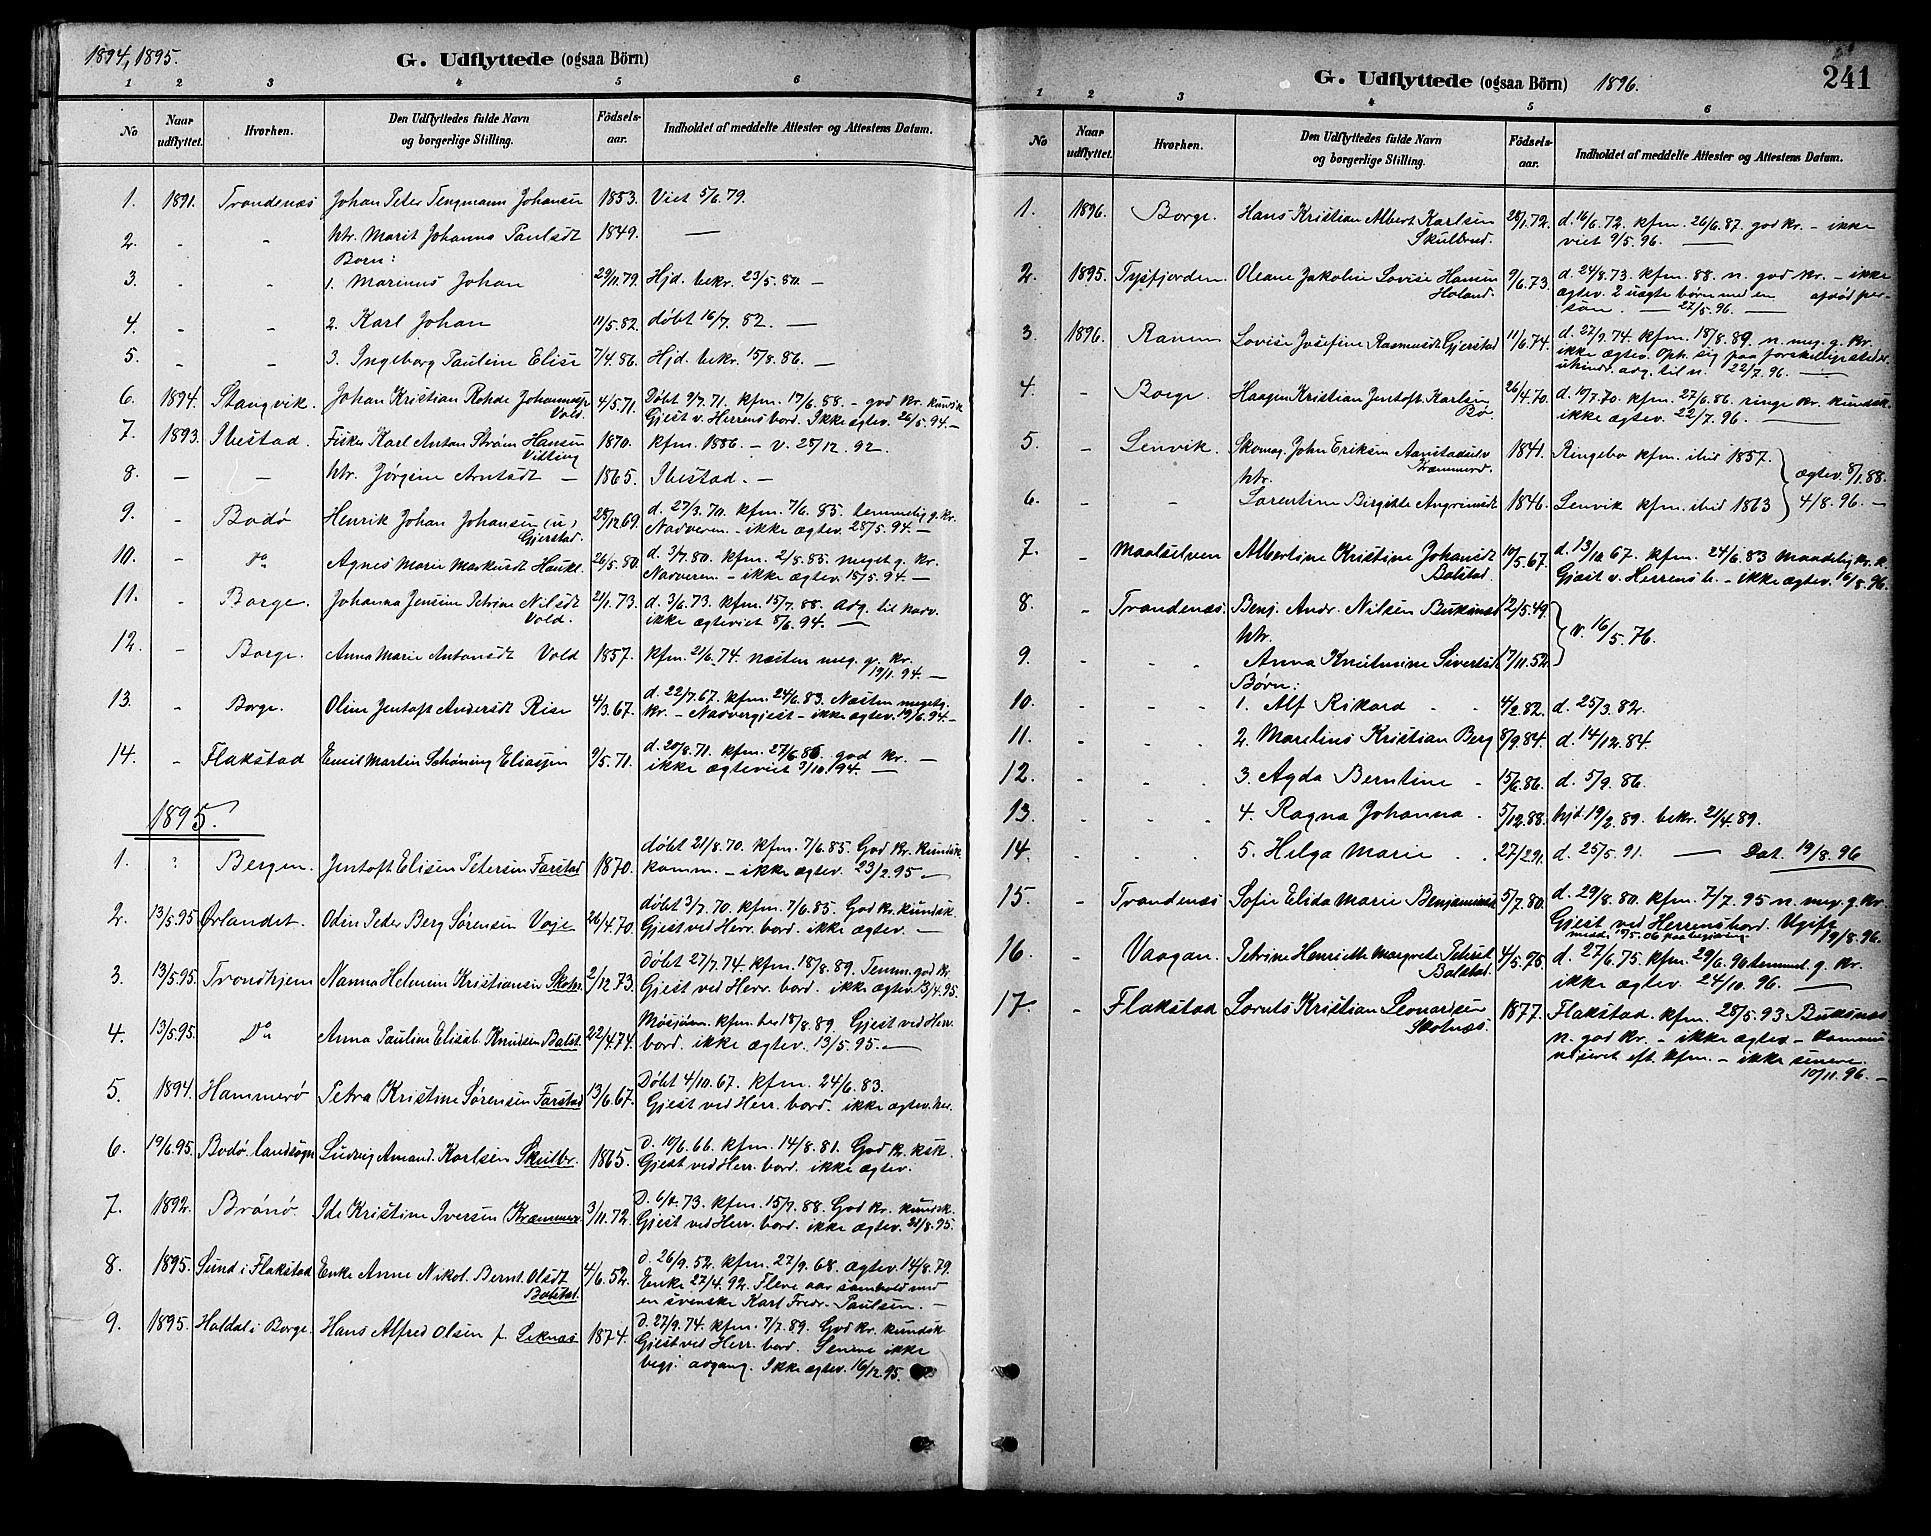 1894, 1895.
G. Udflyttede (ogsaa Börn)
1 2 3 4 5 6
No
Naar udflyttet.
Hvorhen.
Den Udflyttedes fulde Navn og borgerlige Stilling.
Födsels-aar.
Indholdet af meddelte Attester og Attestens Datum.
1. 1891. Trondenæs Johan Peter Tengmann Johansen 1853. Viet 5/6.79.
2. - - htr. Marit Johanna Paulsdt 1849. —
Born:
3. - - 1. Marinus Johan 29/11.79. Hjd. bekr. 23/5.80. -
4. - - 2. Karl Johan 11/5.82. døbt 16/7.82. —
5. - - 3. Ingeborg Pauline Elise 7/4.86. Hjd. bekr. 15/8.86. -
6. 1894. Stangvik. Johan Kristian Rohde Johannessen Vold. 4/5.71. Døbt 9/7.71. kfm. 17/6.88. - god kr. kundsk.
Gjest v. Herrens bord. Ikke ægtev. 26/5.94. -
7. 1893. Ibestad. Fisker Karl Anton Strøm Hansen 1870. kfm. 1886. - v. 28/12.92.
8. — — htr. Jørgine Arntsdt - 1865. Ibestad. -
9. - Bodø Henrik Johan Johansen (u) Gjerstad. 28/12.69. d. 27/3.70. kfm. 7/6.85. temmelig g. kr.
Nadveren - ikke ægtev. 28/5.94. -
10. - do Agnes Marie Markusdt Haukl. 26/5.80. d. 3/7.80. kfm. 2/5.85. meget g. kr.
Nadveren - ikke ægtev. 15/5.94. -
11. - Borge. Johanna Jensine Petrine Nilsdt Vold. 21/1.73. d. 3/6.73. kfm. 15/7.88. adg. til nadv.
ikke ægteviet 8/6.94. —
12. - Borge. Anna Marie Antonsdt Vold 1857. kfm. 21/6.74. næsten meg. g. kr.
19/1.94. -
13. - Borge. Oline Jentoft Andersdt Rise 4/3.67. d. 22/7.67. kfm. 24/6.83. Næsten meget g.
kr. - Nadvergjest - ikke ægtev. 19/6.94. -
14. - Flakstad Emil Martin Schøning Eliassen 9/5.71. d. 20/8.71. kfm. 27/6.86 god kr. -
ikke ægteviet 3/10.94. —
1895.
1. ? Bergen. Jentoft Elisen Petersen Farstad 1870. døbt 21/8.70. kfm. 7/6.85. God kr. kundsk.
komm. - ikke ægtev. 23/2.95 -
2. 13/5.95 Ørlandet. Odin Peder Berg Sørensen Voje 26/4.70. døbt 3/7.70. kfm. 7/6.85. God kr. kundsk.
Gjest ved Herr. bord. ikke ægtev. -
3. 13/5.95. Trondhjem Nanna Helmine Kristiansen 2/12.73. Døbt 27/7.74. kfm. 18/8.89. Temm. god kr.
Gjest ved Herr. bord. ikke ægtev. 13/4.95.
4. 13/5.95. Do Anna Pauline Elisab. Knudsen Balst. 22/4.74. Mosjøen. kfm. her 18/8.89. Gjest ved Herr.
bord. ikke ægtev. 13/5.95. -
5. 1894. Hammerø Petra Kristine Sørensen Farstad 13/6.67. Døbt 4/10.67. kfm. 24/6.83.
Gjest ved Herr. bord. ikke ægtev. her.
6. 19/6.95. Bodø landsogn Ludvig Amand. Karlsen Skulbr. 1865. D. 10/6.66. kfm. 14/8.81. God k. ksk.
Gjest ved Herr. bord. ikke ægtev.
7. 1892. Brønø. Ide Kristine Iversen Kræmmerv. 3/11.72. D. 6/4.73. kfm. 15/7.88. God kr. kundsk.
Gjest ved Herr. bord. ikke ægtev. 21/8.95.
8. 1895. Sund i Flakstad Enke Anne Nikol. Bernt. Olsdt Balstad. 4/6.52. D. 26/9.52. kfm. 27/9.68. ægtev. 14/8.79.
Enke 27/4.92. Flere aar samhold med
en svenske Karl Fredr. Paulsen. -
9. 1895. Haldal i Borge. Hans Alfred Olsen f. Leknæs 1874. D. 27/9.74. kfm. 7/7.89. God kr. kundsk.
Gjest ved Herr. bord. Senere ikke
begj. adgang. Ikke ægtev. 16/12.95.
G. Udflyttede (ogsaa Börn) 1896.
241
1 2 3 4 5 6
No
Naar udflyttet.
Hvorhen.
Den Udflyttedes fulde Navn og borgerlige Stilling.
Födsels-aar.
Indholdet af meddelte Attester og Attestens Datum.
1. 1896. Borge. Hans Kristian Albert Karlsen Skulbrud. 28/1.72. d. 16/6.72. kfm. 26/6.87. god kr. - ikke
viet 9/5.96. —
2. 1895. Tysfjorden. Oleane Jakobine Lovise Hansen Holand. 9/6.73. d. 24/8.73. kfm. 88. n. god kr. - ikke
ægtev. 2 uægte børn med en afdød per-
son. — 27/5.96. —
3. 1896. Ranen Lovise Josefine Rasmusdt Gjerstad 11/6.74. d. 27/9.74. kfm. 18/8.89. n. meg. g. kr.
ikke ægtev. Oph. sig paa forskellige steder.
uhindr. adg. til n. 22/7.96. —
4. - Borge. Haagen Kristian Jentoft Karlsen Bø. 26/4.70. d. 10/7.70. kfm. 27/6.86 ringe kr. kundsk.
ikke ægtev. 22/7.96. —
5. - Lenvik. Skomag. John Eriksen Kræmmerv. 1841. Ringebo kfm. ibid 1857.
ægtev. 8/1.88.
htr.
6. - - Sorentine Birgitte Angrimsdt 1846. Lenvik kfm. ibid 1863 4/8.96. -
7. - Maalselven Albertine Kristine Johansdt Balstad. 10/5.67. d. 13/10.67. kfm. 24/6.83 maadelig kr. k.
Gjæst v. Herrens b. - ikke ægtev. 16/8.96.
8. - Trondenæs. Benj. Andr. Nilsen Buksnæs 12/5.49.
v. 16/5.76.
htr.
9. - - Anna Knutmine Sivertsdt 17/11.52.
Børn:
10. - - 1. Alf Rikard 4/2.82. d. 25/3.82.
11. - - 2. Marelius Kristian Berg 8/9.84. d. 14/12.84.
12. - - 3. Agda Berntine 15/6.86. d. 5/9.86.
13. - - 4. Ragna Johanna 5/12.88. hjd. 19/2.89. bekr. 21/4.89.
14. - - 5. Helga Marie 27/2.91. d. 25/5.91. — Dat. 19/8.96
15. - Trondenæs Sofie Elida Marie Benjaminsdt 5/7.80. d. 29/8.80. kfm. 7/7.95 n. meg. g. kr.
Gjest ved Herrens bord. Ugift 19/8.96.
16. - Vaagan. Petrine Henriette Margrete Petersdt Balstad. 4/5.75. d. 27/6.75. kfm. 29/6.90 temmel. g. kr.
ikke ægtev. 24/10.96. —
17. - Flakstad Lorents Kristian Leonardsen Skotnæs. 1877. Flakstad. kfm. 28/5.93 Buksnæs
n. god kr. - ikke ægtev - Kommu-
niseret eft. kfm. - ikke senere.
10/11.96. -